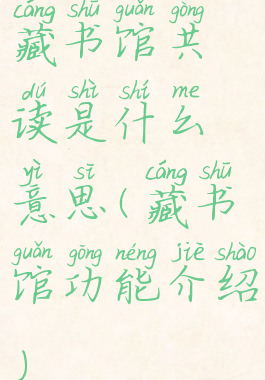 cáng shū guǎn gòng
藏书馆共
dú shì shí me
读是什么
yì sī cáng shū
意思(藏书
guǎn gōng néng jiè shào
馆功能介绍
)